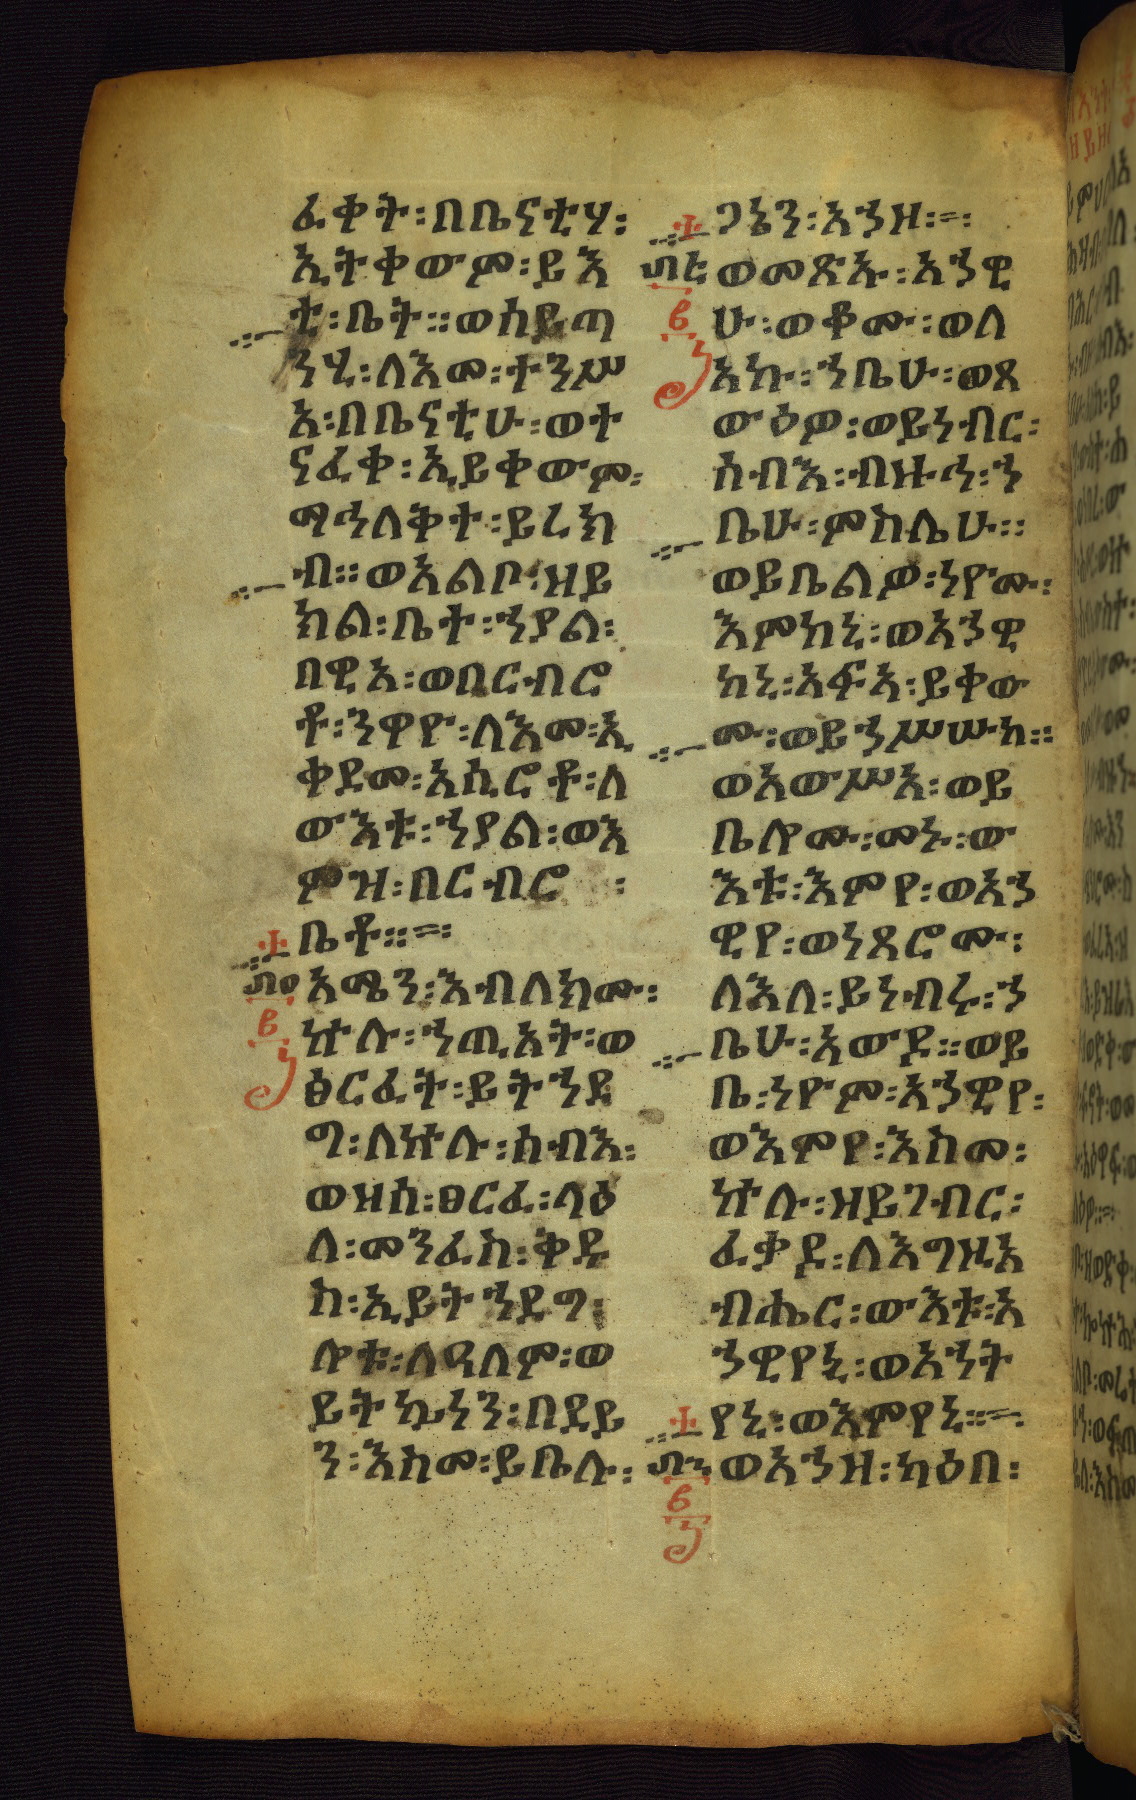 ፈቀት፡በቤናቲሃ፡
ኢትቀውም፡ይእ
ቲ፡ቤት።ወሰይጣ
ንሂ፡ለእመ፡ተንሥ
አ፡በቤናቲሁ፡ወተ
ናፈቀ፡ኢይቀውም፡
ማኅለቅተ፡ይረክ
ብ።ወአልቦ፡ዘይ
ክል፡ቤተ፡ኀያል፡
በዊአ፡ወበርብሮ
ቶ፡ንዋየ፡ለእመ፡ኢ
ቀደመ፡አሲሮቶ፡ለ
ውእቱ፡ኀያል፡ወእ
ምዝ፡በርብሮ፡
ቤቶ።
አሜን፡እብለክሙ፡
ኵሉ፡ኀጢአት፡ወ
ፅርፈት፡ይትኀደ
ግ፡ለኵሉ፡ሰብእ፡
ወዝሰ፡ፀርፈ፡ላዕ
ለ፡መንፈስ፡ቅዱ
ስ፡ኢይትኀደግ፡
ሎቱ፡ለዓለም፡ወ
ይትኴነን፡በደይ
ን፡እስመ፡ይቤሉ፡
ጋኔን፡አኀዘ፡
ወመጽኡ፡አኀዊ
ሁ፡ወቆሙ፡ወለ
አኩ፡ኀቤሁ፡ወጸ
ውዕዎ፡ወይነብር፡
ሰብእ፡ብዙኅ፡ኀ
ቤሁ፡ምስሌሁ።
ወይቤልዎ፡ነዮሙ፡
እምከኒ፡ወአኀዊ
ከኒ፡አፍአ፡ይቀው
ሙ፡ወይኀሥሡከ።
ወአውሥአ፡ወይ
ቤሎሙ፡መኑ፡ው
እቱ፡እምየ፡ወአኀ
ዊየ፡ወነጸሮሙ፡
ለእለ፡ይነብሩ፡ኀ
ቤሁ፡አውደ።ወይ
ቤ፡ነዮም፡አኀዊየ፡
ወእምየ፡እስመ፡
ኵሉ፡ዘይገብር፡
ፈቃደ፡ለእግዚአ
ብሔር፡ውእቱ፡አ
ኀዊየኒ፡ወአኀት
የኒ፡ወእምየኒ።
ወአኀዘ፡ካዕበ፡